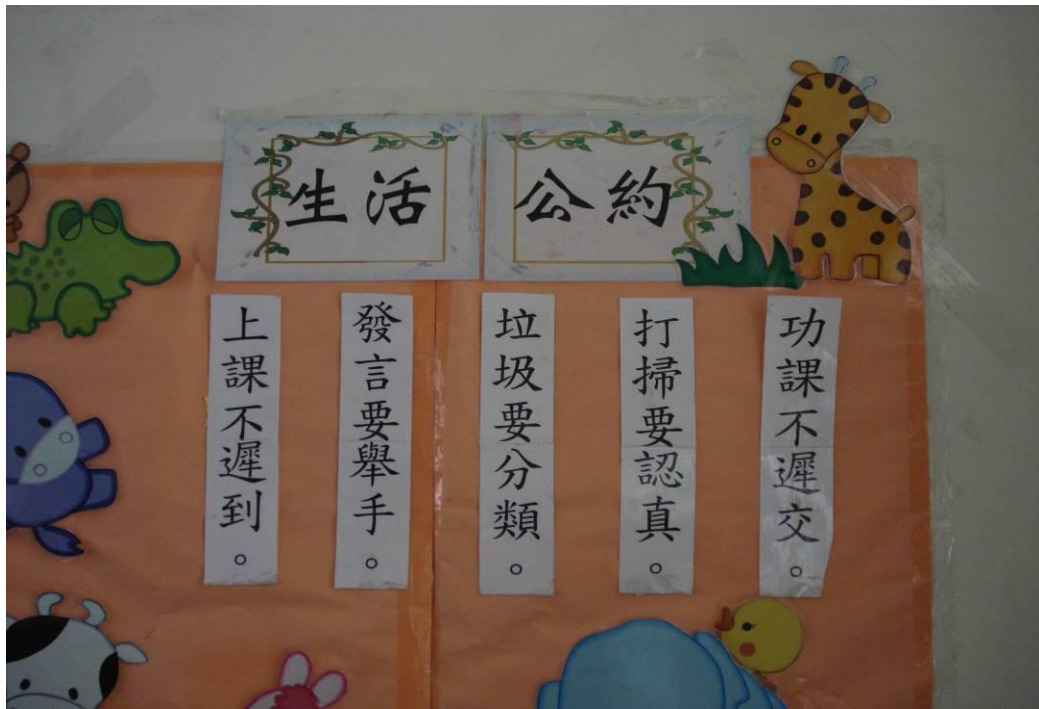 生活公約
上課不遲到。
發言要舉手。
垃圾要分類。
打掃要認真。
功課不遲交。